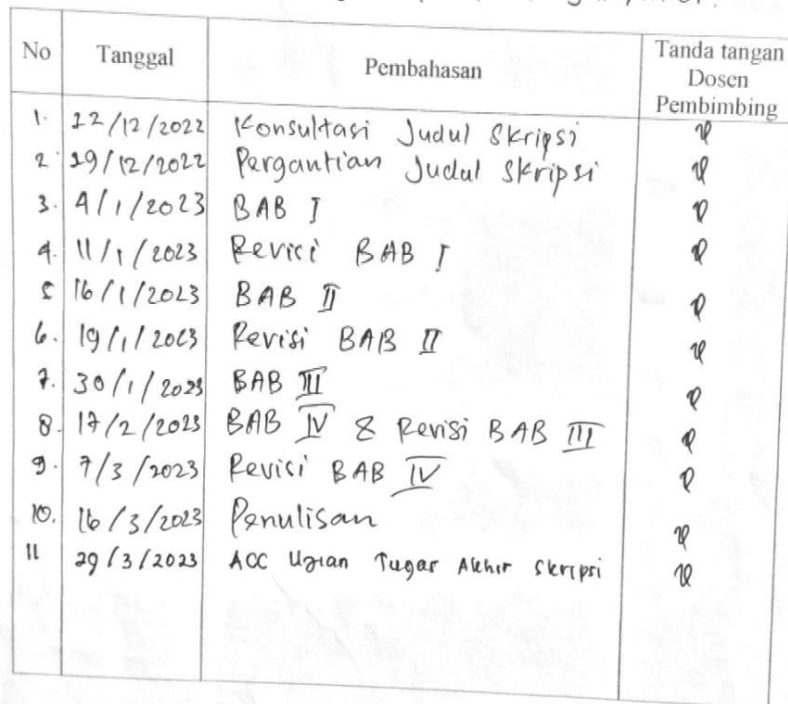 No Tanggal Pembahasan Tanda tangan Dosen Pembimbing
1. 12/12/2022 Konsultasi Judul Skripsi
2. 19/12/2022 Pergantian Judul Skripsi
3. 4/1/2023 BAB I
4. 11/1/2023 Revisi BAB I
5 16/1/2023 BAB II
6. 19/1/2023 Revisi BAB II
7. 30/1/2023 BAB III
8. 17/2/2023 BAB IV & Revisi BAB III
9. 7/3/2023 Revisi BAB IV
10. 16/3/2023 Penulisan
11 29/3/2023 ACC Ujian Tugas Akhir Skripsi